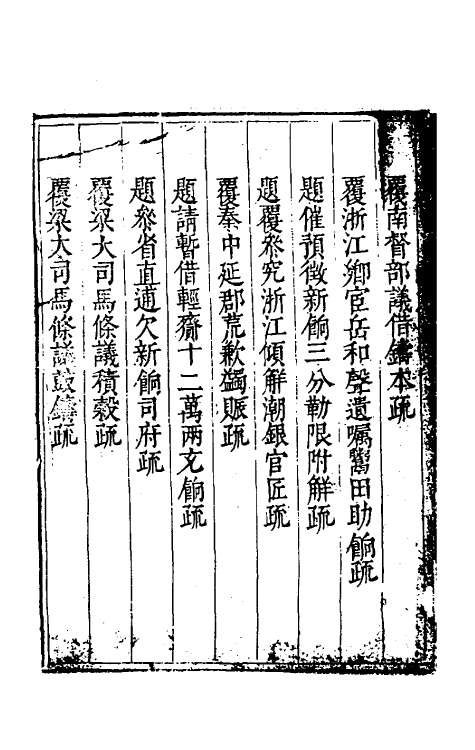 覆南督部議借鑄本疏
覆浙江鄉宦岳和聲遺囑鬻田助餉疏
題催預徵新餉三分勒限附解疏
題覆叅究浙江傾解潮銀官匠疏
覆秦中延郡荒歉蠲賑疏
題請暫借輕齎十二萬兩充餉疏
題叅省直逋欠新餉司府疏
覆梁大司馬條議積穀疏
覆梁大司馬條議鼓鑄疏